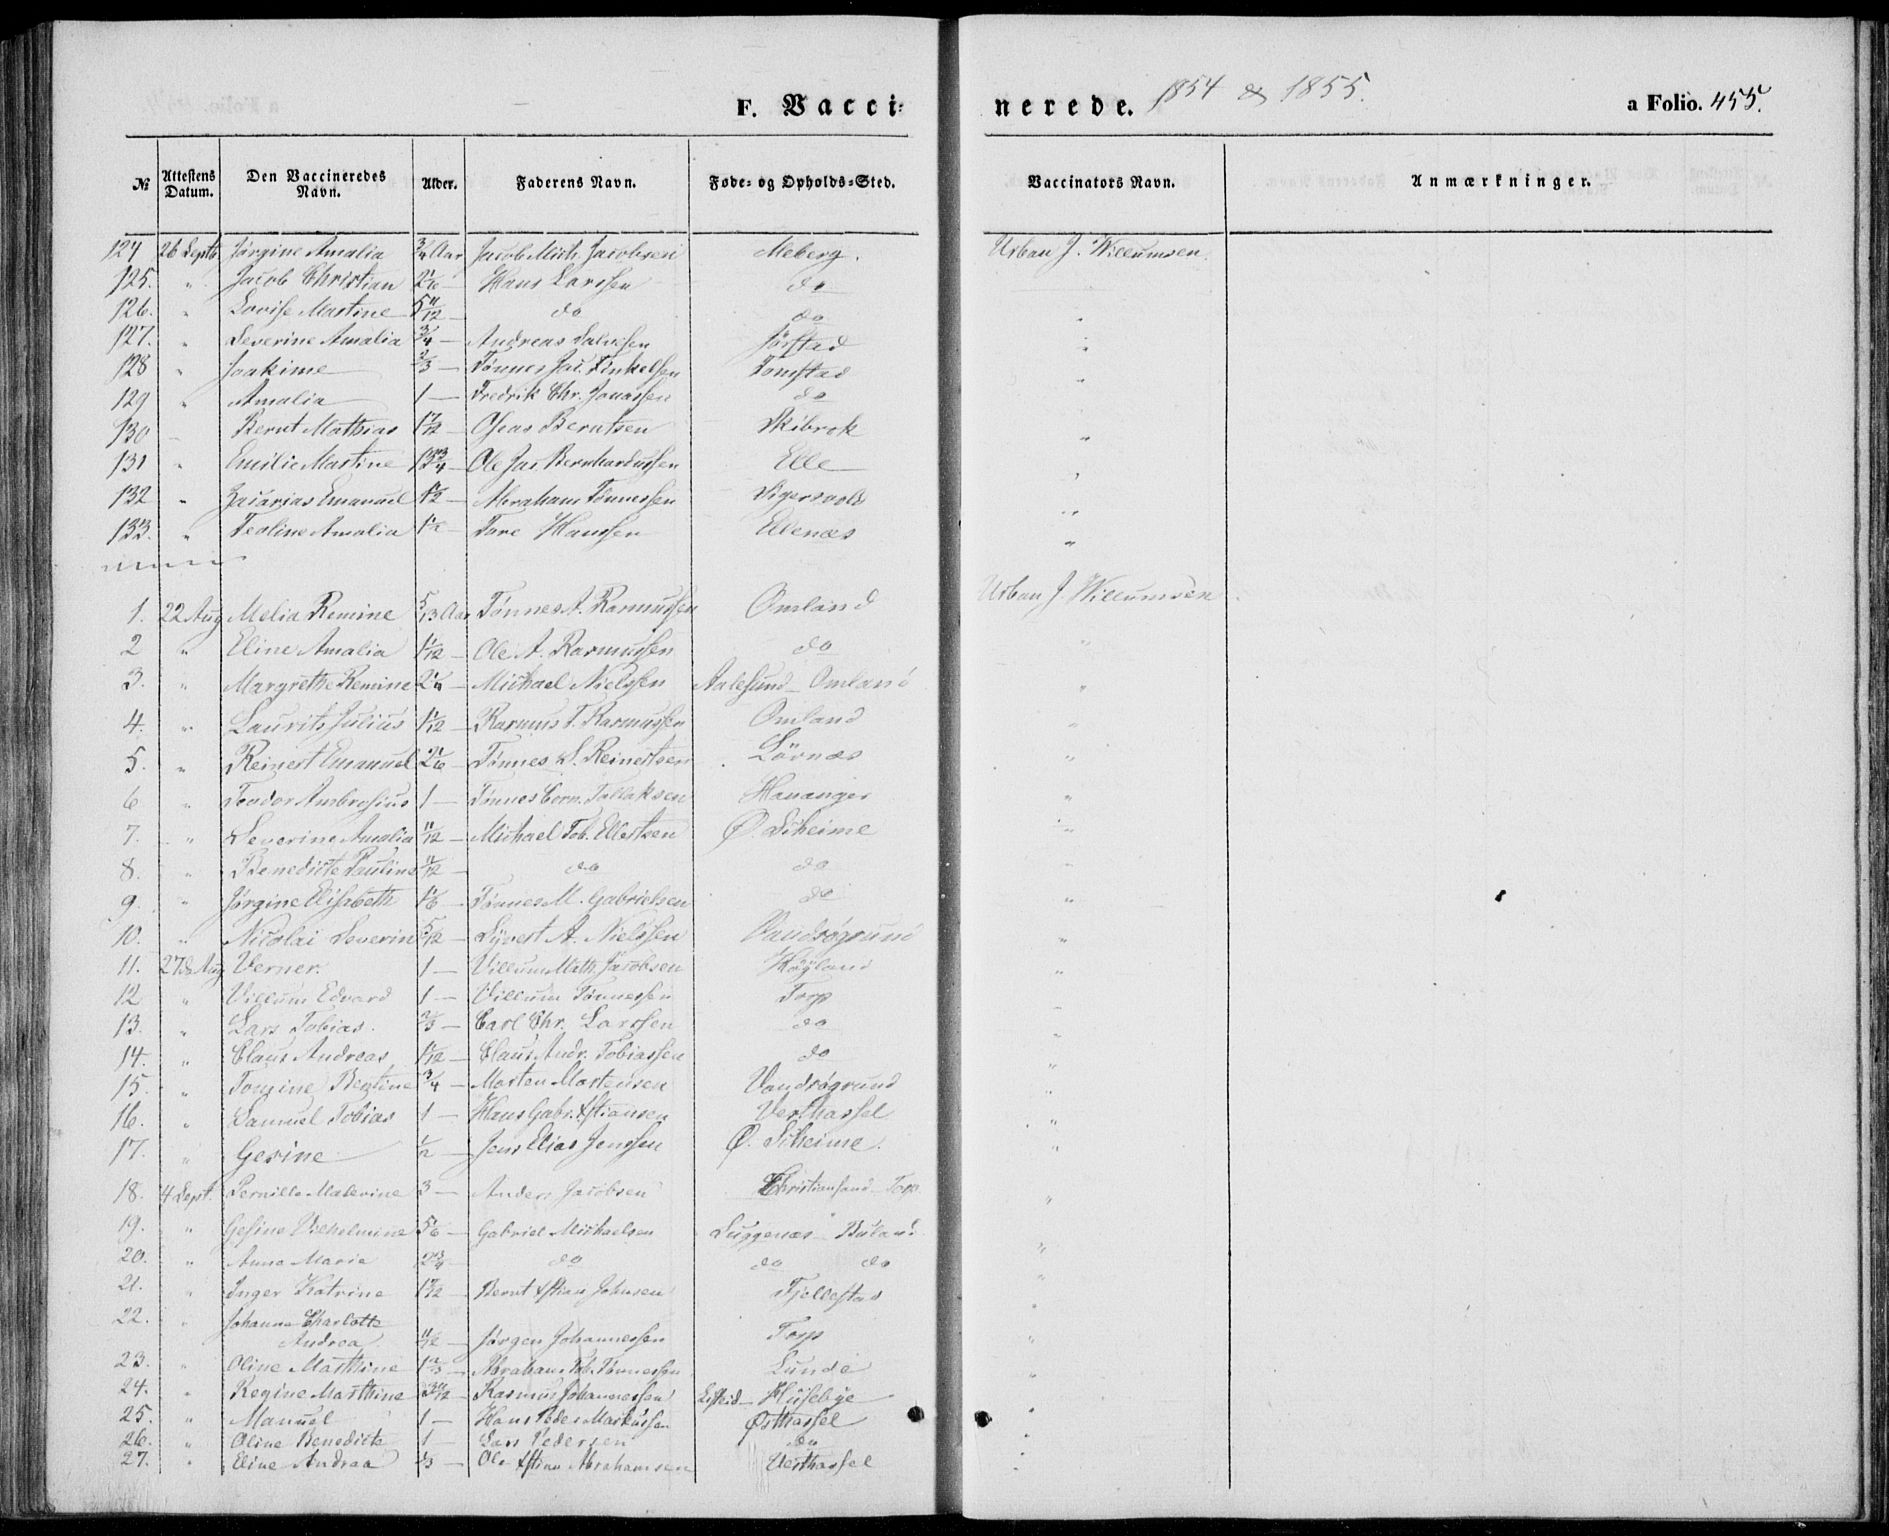 F. Vacci-nerede. 1854 & 1855. a Folio. 455.
№ Attestens Datum. Den Vaccineredes Navn. Alder. Faderens Navn. Føde- og Opholds-Sted. Vaccinators Navn. Anmærkninger.
124 26 Septb Jørgine Amalia 3/4 Aar Jacob Mich. Jacobsen Meberg. Urban J. Willumsen.
125. " Jacob Christian 2 1/6 — Hans Larssen do
126. " Lovise Martine 5 11/12 — do do "
127. " Severine Amalia 3/4 — Andreas Salvesen Jørstad "
128 " Joakime 2/3 — Tønnes Jac. Tomstad "
129 " Amalia 1 — Fredrik Chr. Jonassen do
130 — Bernt Mathias — Oseas Berntsen Skibrok "
131 " Emilie Martine — Ole Jac Bernhardussen Elle "
132 " Zacarias Emanuel — Abraham Tønnessen Sigersvold "
133. " Teoline Amalia — Tore Hanssen Ellenæs "
1. 22 Aug Melia Remine 5/13 Aar Tønnes A. Rasmussen Omland Urban J. Willumsen
2 " Eline Amalia 1 1/12 — Ole A. Rasmussen do "
3. " Margrethe Remine 2 1/4 — Michael Nielssen Aalesund — Omland "
4. " Laurits Julius 1 1/12 — Rasmus T. Rasmussen Omland "
5. " Reinert Emanuel 2 1/6 — Tønnes S. Reinertsen Lörnæs "
6 " Teodor Ambrosius 1 — Tønnes Corn. Tallaksen Hananger "
7. " Severine Amalia 11/12 — Michael Tob. Ellertsen Ø. Siheime "
8. " Benedicte Pauline 11/12 — do do "
9. " Jørgine Elisabeth 1 1/6 — Tønnes M. Gabrielsen do "
10. " Nicolai Severin 5/12 — Syvert A. Nielssen Vandsøgrund "
11. 27de Aug Verner. 1 — Villum Math. Jacobsen Høyland "
12 " Villum Edvard 1 — Villum Tønnessen Torp
13. " Lars Tobias. 2/3 — Carl Chr. Larssen do "
14. " Claus Andreas 1 1/12 — Claus Andr. Tobiassen do "
15. " Tomine Bertine 3/4 — Morten Mortensen Vandsøgrund "
16. " Samuel Tobias 1 — Hans Gabr. Xstiansen Vesthassel "
17. " Gesine 1/2 — Jens Elias Jenssen Ø. Siheime. "
18. 4 Sept. Pernille Malevine 3 — Anders Jacobsen Christiansand — Torp. "
19. " Gesine Vilhelmine 5/6 — Gabriel Michaelsen Luggenæs — Buland "
20. " Anne Marie 2 3/4 — do do do "
21. " Inger Katrine — Bernt Xstian Johnsen Fjellestad "
22. " Johanne Charlotte
Andrea 11/12 — Jørgen Johannessen Torp "
23. " Oline Marthine 1 2/3 — Abraham Tob. Tønnessen Lunde "
24. " Regine Marthine — Rasmus Johannessen — Huseby "
25. " Manuel 1 — Hans Peder Markussen Østhassel "
26. " Oline Benedicte 1 — Lars Pedersen do "
27. " Eline Andrea 1/3 — Ole Xstian Abrahamsen Vesthassel "